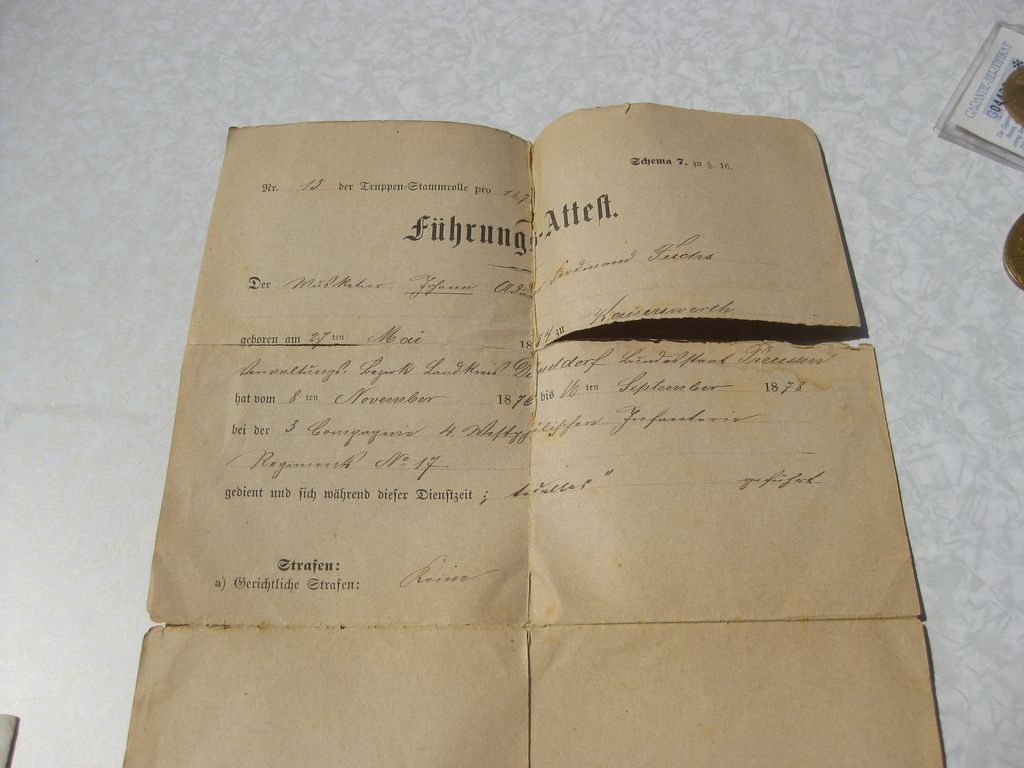 Schema 7. zu §. 16.
Nr. 15 der Truppen-Stammrolle pro 187
Führungs-Attest.
Der Musketier Johann Adam Ferdinand Fuchs
geboren am 27 ten Mai 1854 zu Kaiserswerth
Verwaltungs-Bezirk Landkreis Düsseldorf Bundesstaat Preussen
hat vom 8 ten November 1876 bis 16 ten September 1878
bei der 3 Compagnie 4 Westphälischen Infanterie
Regiments No 17
gedient und sich während dieser Dienstzeit „tadellos" geführt
Strafen:
a) Gerichtliche Strafen: Keine
GARANTIE-ZERTIFIKAT